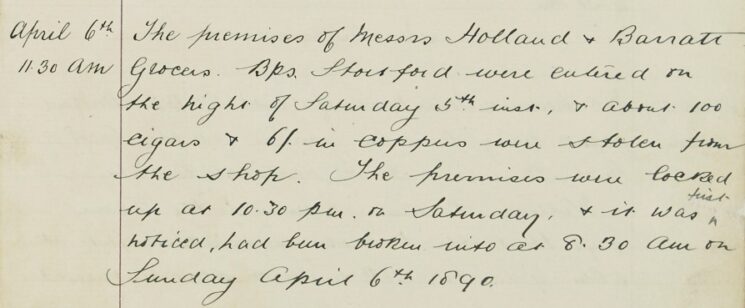 April 6th The premises of Messrs Holland & Barratt
11.30 am Grocers. Bps. Stortford were entered on
the night of Saturday 5th inst, & about 100
cigars & 6/. in coppers were stolen from
the shop. The premises were locked
up at 10.30 pm. on Saturday, & it was first
noticed, had been broken into at 8.30 am on
Sunday April 6th 1890.